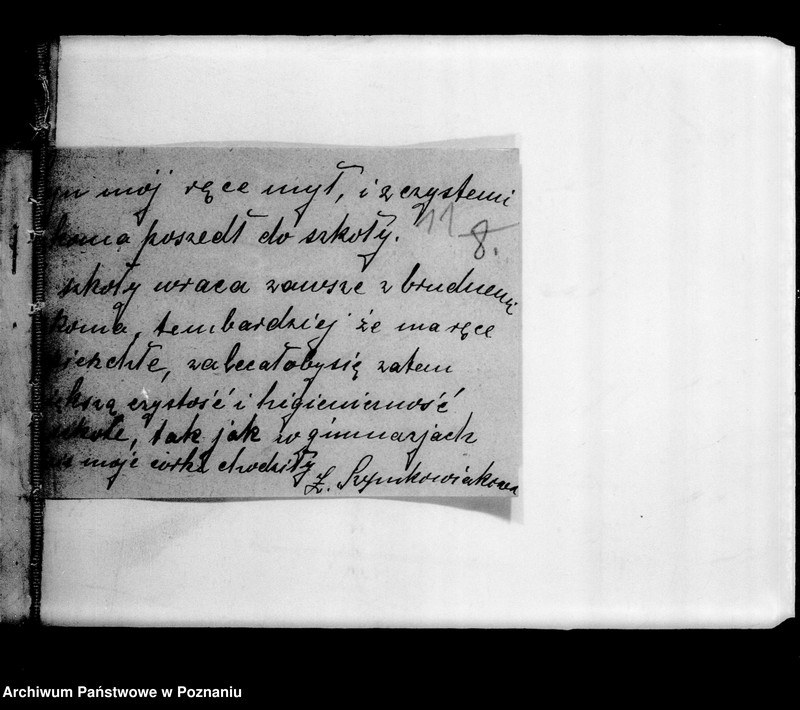 mój ręce mył, i z czystemi
koma poszedł do szkoły.
11
8.
szkoły wraca zawsze z brudnemi
koma, tembardziej że ma ręce
zalecałobysię zatem
kszą czystość i higieniczność
szkole, tak jak w gimnazjach
moje córki chodziły
Z. Szymkowiakowa
Archiwum Państwowe w Poznaniu